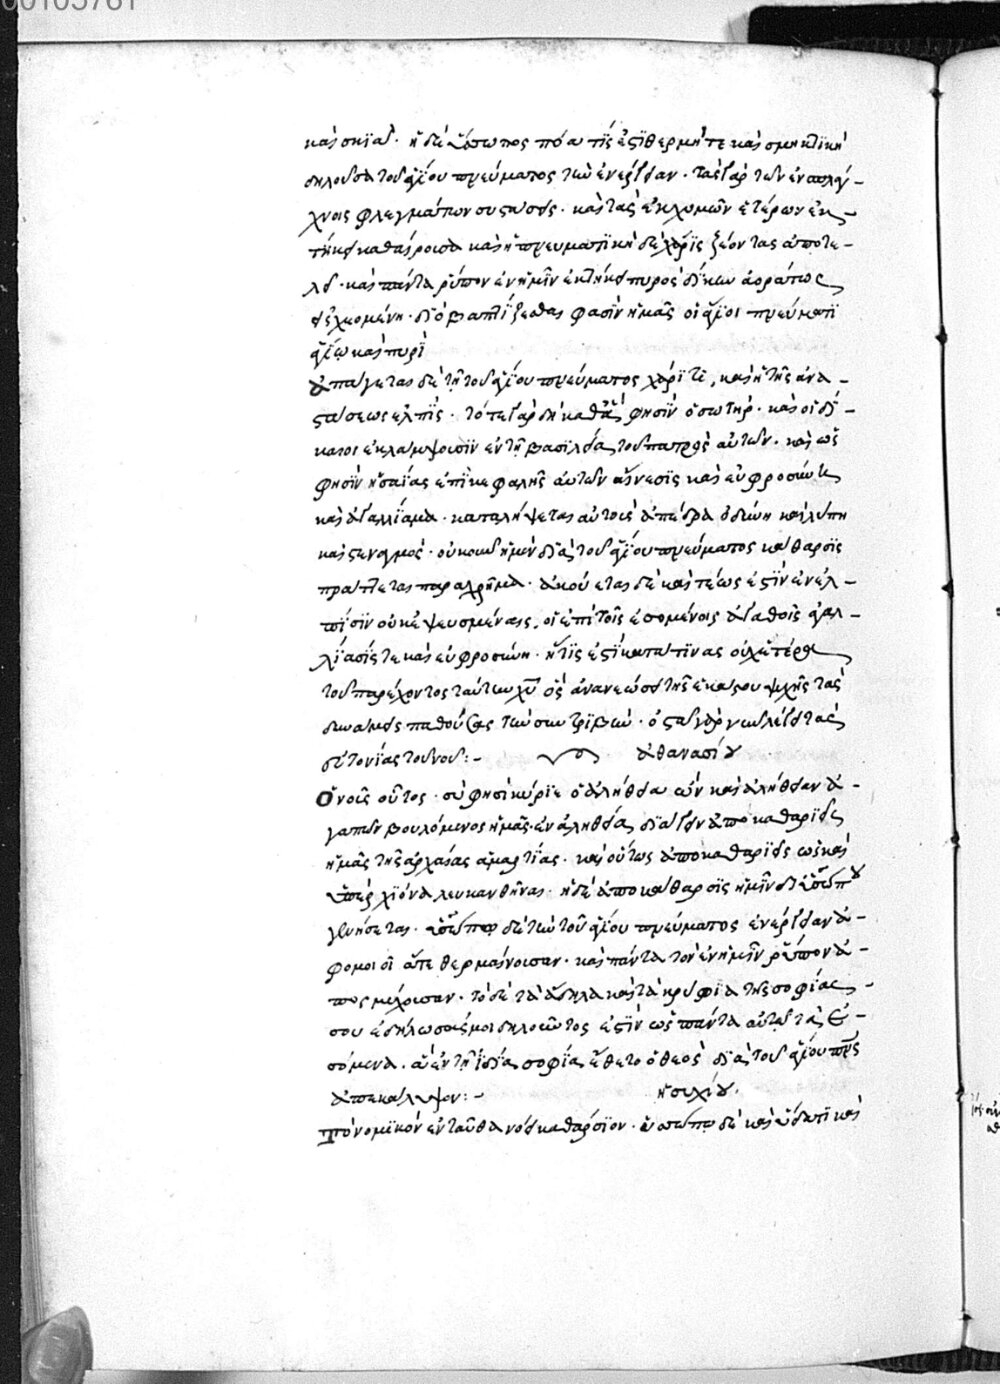 00105761
καὶ σκιᾶ. ἡ δὲ ὕσσωπος πόα τίς ἐστι θερμή τε καὶ σμηκτικὴ
δηλοῦσα τοῦ ἁγίου πνεύματος τὴν ἐνέργειαν. τὰς γὰρ τῶν ἐν σπλά-
χνοις φλεγμάτων συστάσεις. καὶ τὰς ἐκ χυμῶν ἑτέρων ἐκ-
τήκει καθαίρουσα καὶ ἡ πνευματικὴ δὲ χάρις ζέοντας ἀποτε-
λεῖ. καὶ πάντα ῥύπον ἐν ἡμῖν ἐκτήκει πυρὸς δίκην ἀοράτως
διὸ βαπτίζεσθαι φασὶν ἡμᾶς οἱ ἅγιοι πνεύματι
ἁγίω καὶ πυρί
ἅπτεται δὲ τῆ τοῦ ἁγίου πνεύματος χάριτι, καὶ ἡ τῆς ἀνα-
στάσεως ἐλπίς. τότε γὰρ δὴ καθά φησιν ὁ σωτὴρ. καὶ οἱ δί-
καιοι ἐκλάμψουσιν ἐν τῆ βασιλεία τοῦ πατρὸς αὐτῶν. καὶ ὥς
φησιν ἡσαΐας ἐπὶ κεφαλῆς αὐτῶν αἴνεσις καὶ εὐφροσύνη
καὶ ἀγαλλίαμα. καταλήψεται αὐτοὺς ἀπέδρα ὀδύνη καὶ λύπη
καὶ στεναγμός. οὐκοῦν ἡ μὲν διὰ τοῦ ἁγίου πνεύματος κάθαρσις
πράττεται παραχρῆμα. ἀκούεται δὲ καὶ τέως ἐστὶν ἐν ἐλ-
πίσιν οὐκ ἐψευσμέναις, οἱ ἐπὶ τοῖς ἐσομένοις ἀγαθοῖς ἀγαλ-
λίασίς τε καὶ εὐφροσύνη. ἥτις ἐστὶ κατά τινας
τοῦ παρέχοντος ταύτην χυ ὃς ἀνανεώσει τῆς ἑκάστου ψυχῆς τὰς
δυνάμεις παθούσας τὴν συντριβήν. ὀστᾶ γὰρ νῦν λέγει τὰς
εὐτονίας τοῦ νοῦ:- ἀθανασίου
Ὁ νοῦς οὗτος. σὺ φησὶ κύριε ὁ ἀλήθεια ὢν καὶ ἀλήθειαν ἀ-
γαπῶν βουλόμενος ἡμᾶς ἐν ἀληθεία διάγειν ἀποκαθαρίσεις
ἡμᾶς τῆς ἀρχαίας ἁμαρτίας. καὶ οὕτως ἀποκαθαρίσεις ὡς καὶ
ὑπὲρ χιόνα λευκανθῆναι. ἡ δὲ ἀποκάθαρσις ἡμῖν δι ὑσσώπου
γενήσεται. ὕσσωπον δὲ τὴν τοῦ ἁγίου πνεύματος ἐνέργειαν ἀ-
φομοιοῖ ἅτε θερμαίνουσαν. καὶ πάντα τὸν ἐν ἡμῖν ῥύπον ἀ-
ποσμύχουσαν. τὸ δὲ τὰ ἄδηλα καὶ τὰ κρύφια τῆς σοφίας
σου ἐδήλωσάς μοι δηλοῦντος ἐστὶν ὡς πάντα αὐτῶ τὰ ἐ-
σόμενα. ἃ ἐν τῆ ἰδία σοφία ἔθετο ὁ θεὸς διὰ τοῦ ἁγίου πνς
ἀπεκάλυψεν:- ἡσυχίου.
Τὸ νομικὸν ἐνταῦθα νόει καθάρσιον. ὑσσώπω δὲ καὶ ὕδατι καὶ